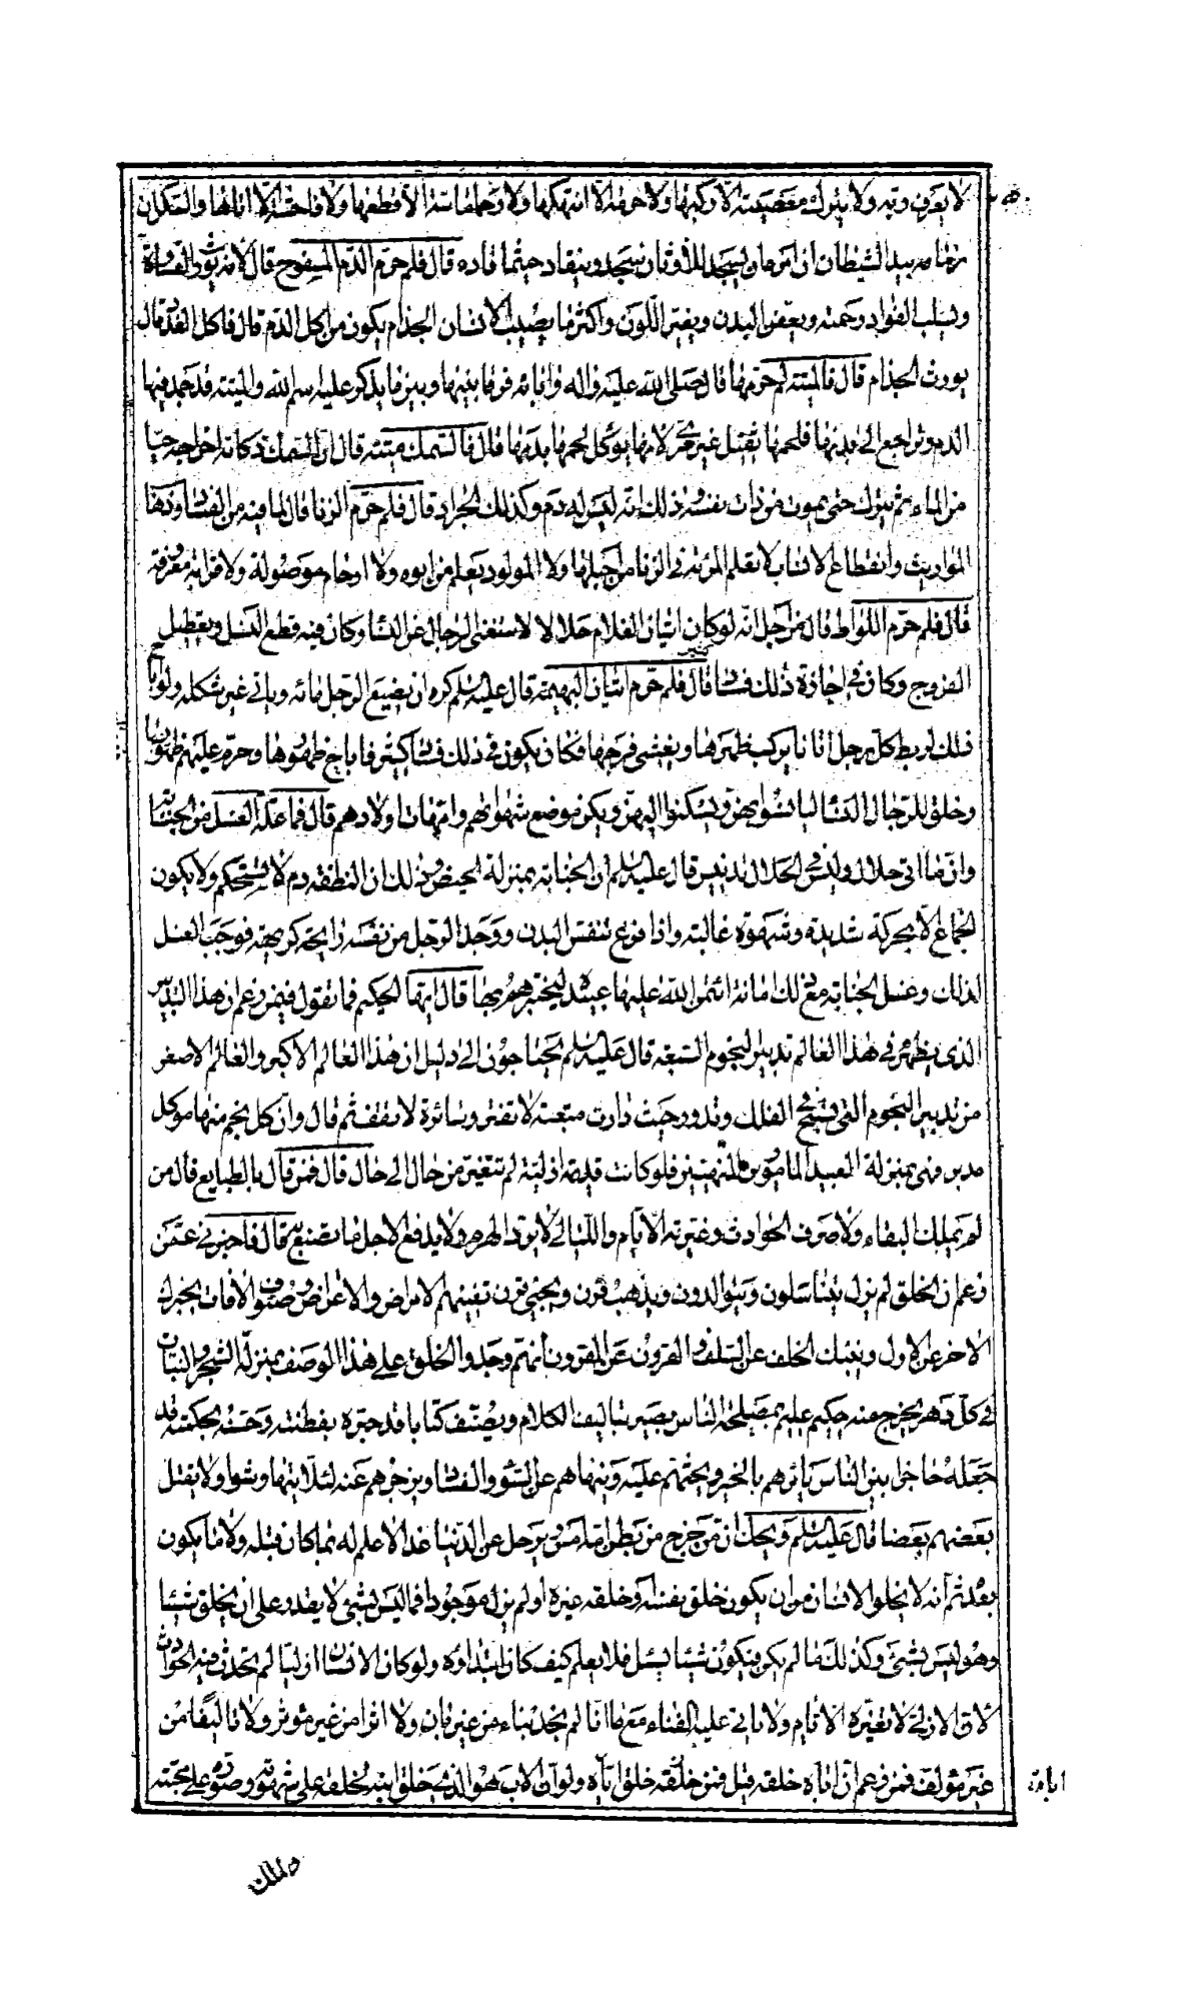 لا يعرف ربه ولا يترك معصيته الا ركبها ولا حرمة الا انتهكها ولا رحما ماسة الا قطعها ولا فاحشة الا اتاها والسكران
زمامه بيد الشيطان ان امره ان يسجد للاوثان سجد وينقاد حيثما قاده قال فلم حرم الدم المسفوح قال لانه يورث القساوة
ويسلب الفواد رحمته ويعفن البدن ويغير اللون واكثر ما يصيب الانسان الجذام يكون من اكل الدم قال فاكل الغدد قال
يورث الجذام قال فالميتة لم حرمها قال صلى الله عليه واله فرقا بينها وبين ما يذكر عليه اسم الله والميتة قد جمد فيها
الدم وتراجع الى بدنها فلحمها ثقيل غير مرئ لانها يؤكل لحمها بدمها قال فالسمك ميتة قال ان السمك ذكاته اخراجه حيا
من الماء ثم يترك حتى يموت من ذات نفسه وذلك انه ليس له دم وكذلك الجراد قال فلم حرم الزنا قال لما فيه من الفساد وذهاب
المواريث وانقطاع الانساب لا تعلم المرئة في الزنا من احبلها ولا المولود يعلم من ابوه ولا ارحام موصولة ولا قرابة معروفة
قال فلم حرم اللواط قال من اجل انه لو كان اتيان الغلام حلالا لاستغنى الرجال عن النساء وكان فيه قطع النسل وتعطيل
الفروج وكان في اجازة ذلك فساد كثير قال فلم حرم اتيان البهيمة قال عليه السلم كره ان يضيع الرجل مائه وياتي غير شكله ولو اباح
ذلك لربط كل رجل اتانا يركب ظهرها ويغشى فرجها فكان يكون في ذلك فساد كثير فاباح ظهورها وحرم عليهم فروجها
وخلق للرجال النساء ليانسوا بهن ويسكنوا اليهن ويكن موضع شهواتهم وامهات اولادهم قال فما علة الغسل من الجنابة
وانما اتى حلالا وليس في الحلال تدنيس قال عليه السلم ان الجنابة بمنزلة الحيض وذلك ان النطفة دم لا يستحكم ولا يكون
الجماع الا بحركة شديدة وشهوة غالبة واذا فرغ تنفس البدن ووجد الرجل من نفسه رايحة كريهة فوجب الغسل
لذلك وغسل الجنابة مع ذلك امانة ائتمن الله عليها عبيده ليختبرهم بها قال ايها الحكيم فما تقول فيمن زعم ان هذا التدبير
الذي يظهر في هذا العالم تدبير النجوم السبعة قال عليه السلم يحتاجون الى دليل ان هذا العالم الاكبر والعالم الاصغر
من تدبير النجوم التي تسبح في الفلك وتدور حيث دارت متعبة لا تفتر وسائرة لا تقف ثم قال وان كل نجم منها موكل
مدبر فهي بمنزلة العبيد المامورين المنهيين فلو كانت قديمة ازلية لم تتغير من حال الى حال قال فمن قال بالطبايع قال من
لم يملك البقاء ولا صرف الحوادث وغيرته الايام والليالي لا يرد الهرم ولا يدفع الاجل ما تصنع به قال فاخبرني عمن
زعم ان الخلق لم يزل يتناسلون ويتوالدون ويذهب قرن ويجئ قرن تفنيهم الامراض والاعراض وصنوف الافات يخبرك
الاخر عن الاول وينبئك الخلف عن السلف والقرون عن القرون انهم وجدوا الخلق على هذا الوصف بمنزلة الشجر والنبات
في كل دهر يخرج منه حكيم عليم بمصلحة الناس بصير بتاليف الكلام ويصنف كتابا قد حبره بفطنته وحسنه بحكمته قد
جعله حاجزا بين الناس يامرهم بالخير ويحثهم عليه وينهاهم عن السوء والفساد ويزجرهم عنه لئلا يتهاوشوا ولا يقتل
بعضهم بعضا قال عليه السلم ويحك ان من خرج من بطن امه امس ويرحل عن الدنيا غدا لا علم له بما كان قبله ولا ما يكون
بعده ثم انه لا يخلو الانسان من ان يكون خلق نفسه او خلقه غيره او لم يزل موجودا فما ليس بشئ لا يقدر على ان يخلق شيئا
وهو ليس بشئ وكذلك ما لم يكن فيكون شيئا يسئل فلا يعلم كيف كان ابتداؤه ولو كان الانسان ازليا لم تحدث فيه الحوادث
لان الازلي لا تغيره الايام ولا ياتي عليه الفناء مع انا لم نجد بناء من غير بان ولا اثرا من غير مؤثر ولا تاليفا من
غير مؤلف فمن زعم ان اباه خلقه قيل فمن خلق اباه ولو ان الاب هو الذي خلق ابنه لخلقه على شهوته وصوره على محبته